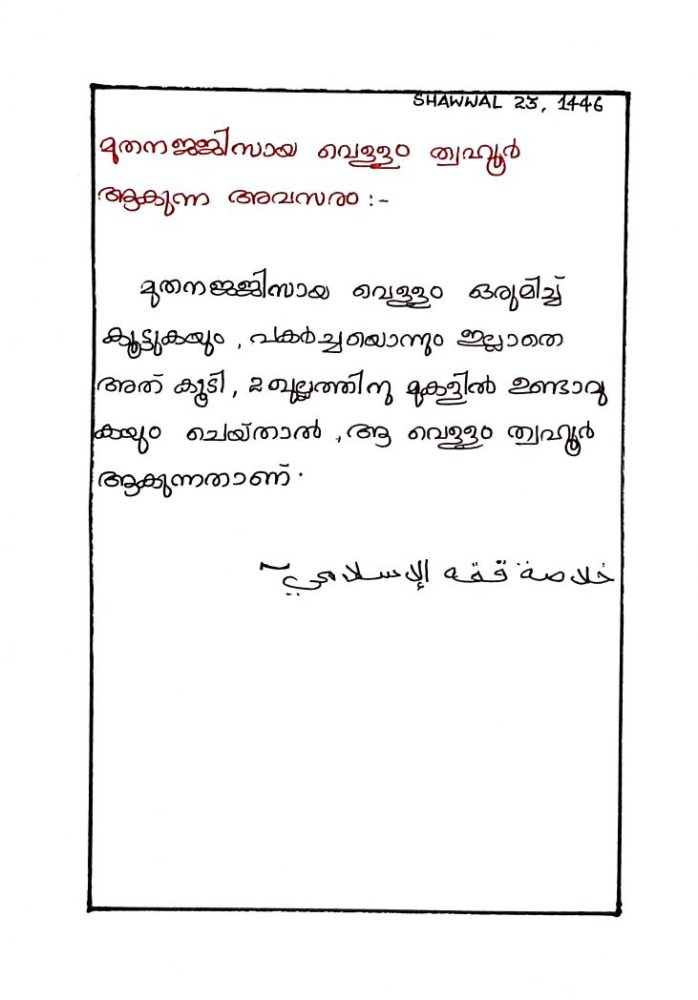 SHAWWAL 23, 1446
മുതനജ്ജിസായ വെള്ളം ത്വഹൂർ
ആകുന്ന അവസരം :-
മുതനജ്ജിസായ വെള്ളം ഒരുമിച്ച്
കൂട്ടുകയും , പകർച്ചയൊന്നും ഇല്ലാതെ
അത് കൂടി , 2 ഖുല്ലത്തിനു മുകളിൽ ഉണ്ടാവു
കയും ചെയ്താൽ , ആ വെള്ളം ത്വഹൂർ
ആകുന്നതാണ് .
خلاصة فقه الإسلامي~